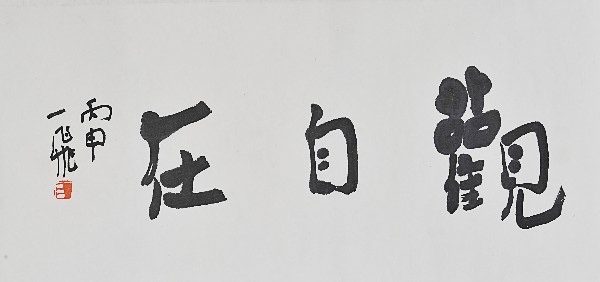 觀自在
丙申
一飛